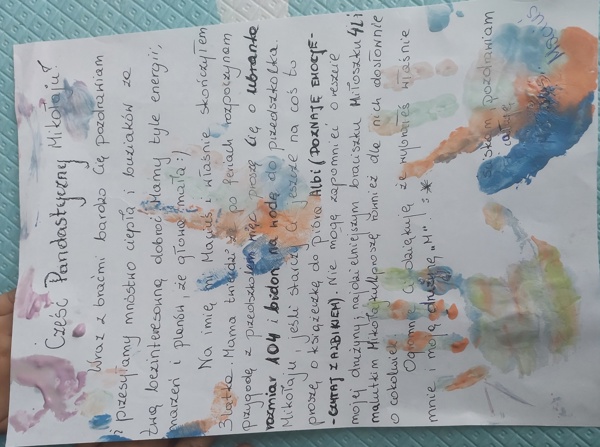 Cześć Pandastyczny Mikołaju!
Wraz z braćmi bardzo Cię pozdrawiam
i przesyłamy mnóstwo ciepła i buziaków za
Twą bezinteresowną dobroć. Mamy tyle energii,
marzeń i planów, że głowa mała :)
Na imię mi Maciuś i właśnie skończyłem
3 latka. Mama twierdzi, że po feriach rozpocznam
przygodę z przedszkolem więc proszę Cię o ubranka
rozmiar 104 i bidon na wodę do przedszkolka.
Mikołaju, jeśli starczy Ci jeszcze na coś to
proszę o książeczkę do pióra Albi (POZNAJĘ EMOCJE-
-CZYTAJ Z ALBIKIEM). Nie mogę zapomnieć o reszcie
mojej drużyny; najdzielniejszym braciszku Miłoszku 4L i
malutkim Mikołajku proszę również dla nich dosłownie
o cokolwiek.
Ogromnie Ci dziękuję że wybrałeś właśnie
mnie i moją drużynę "M" :*
ściskam, pozdrawiam
całuję
Maciuś